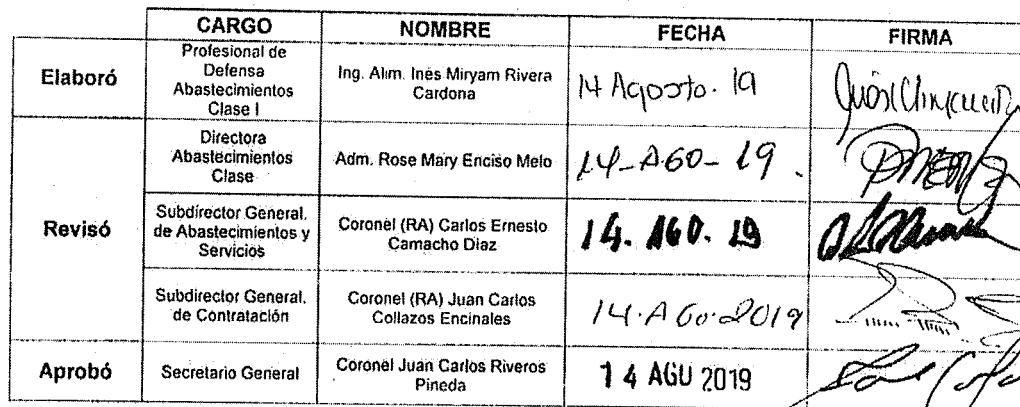 CARGO NOMBRE FECHA FIRMA
Elaboró
Profesional de
Defensa
Abastecimientos
Clase I
Ing. Alim. Inés Miryam Rivera
Cardona
14 Agosto. 19
Revisó
Directora
Abastecimientos
Clase
Adm. Rose Mary Enciso Melo
14-AGO-19.
Subdirector General.
de Abastecimientos y
Servicios
Coronel (RA) Carlos Ernesto
Camacho Diaz
14. AGO. 19
Subdirector General.
de Contratación
Coronel (RA) Juan Carlos
Collazos Encinales
14.AGo.2019
Aprobó
Secretario General
Coronel Juan Carlos Riveros
Pineda
14 AGO 2019